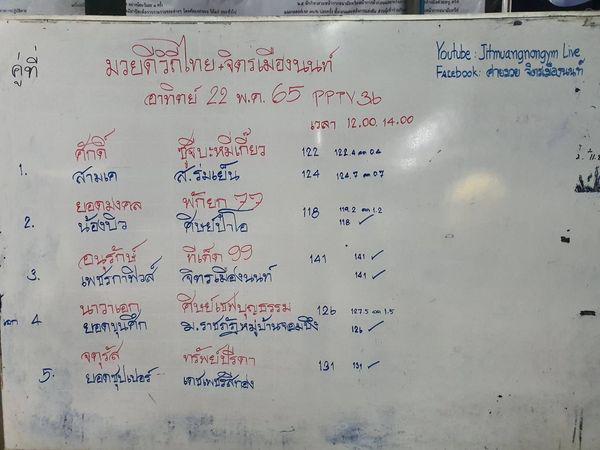 คู่ที่
มวยดีวิถีไทย + จิตรเมืองนนท์
อาทิตย์ 22 พ.ค. 65 PPTV36
เวลา 12.00. 14.00
Youtube : Jitmuangnongym Live
Facebook : ค่ายมวย จิตรเมืองนนท์
ศักดิ์ ซุ้จบะหมี่เกี๊ยว 122 122.4 ลด 0.4
1. สามเค ส.ร่มเย็น 124 124.7 ลด 0.7
ยอดมงคล พักยก 77 118 119.2 ลด 1.2
2. น้องบิว ศิษย์ป๋าโอ 118 ✓
อนุรักษ์ ทีเด็ด 99 141 141 ✓
3. เพชรกาฟิวส์ จิตรเมืองนนท์ 141 ✓
นาวาเอก ศิษย์เชฟบุญธรรม 126 127.5 ลด 1.5
เอก 4. ยอดขุนศึก ม.ราชภัฏหมู่บ้านจอมบึง 126 ✓
จตุรัส ทรัพย์ปรีดา 131 131 ✓
5. ยอดซุปเปอร์ เดชเพชรสีทอง